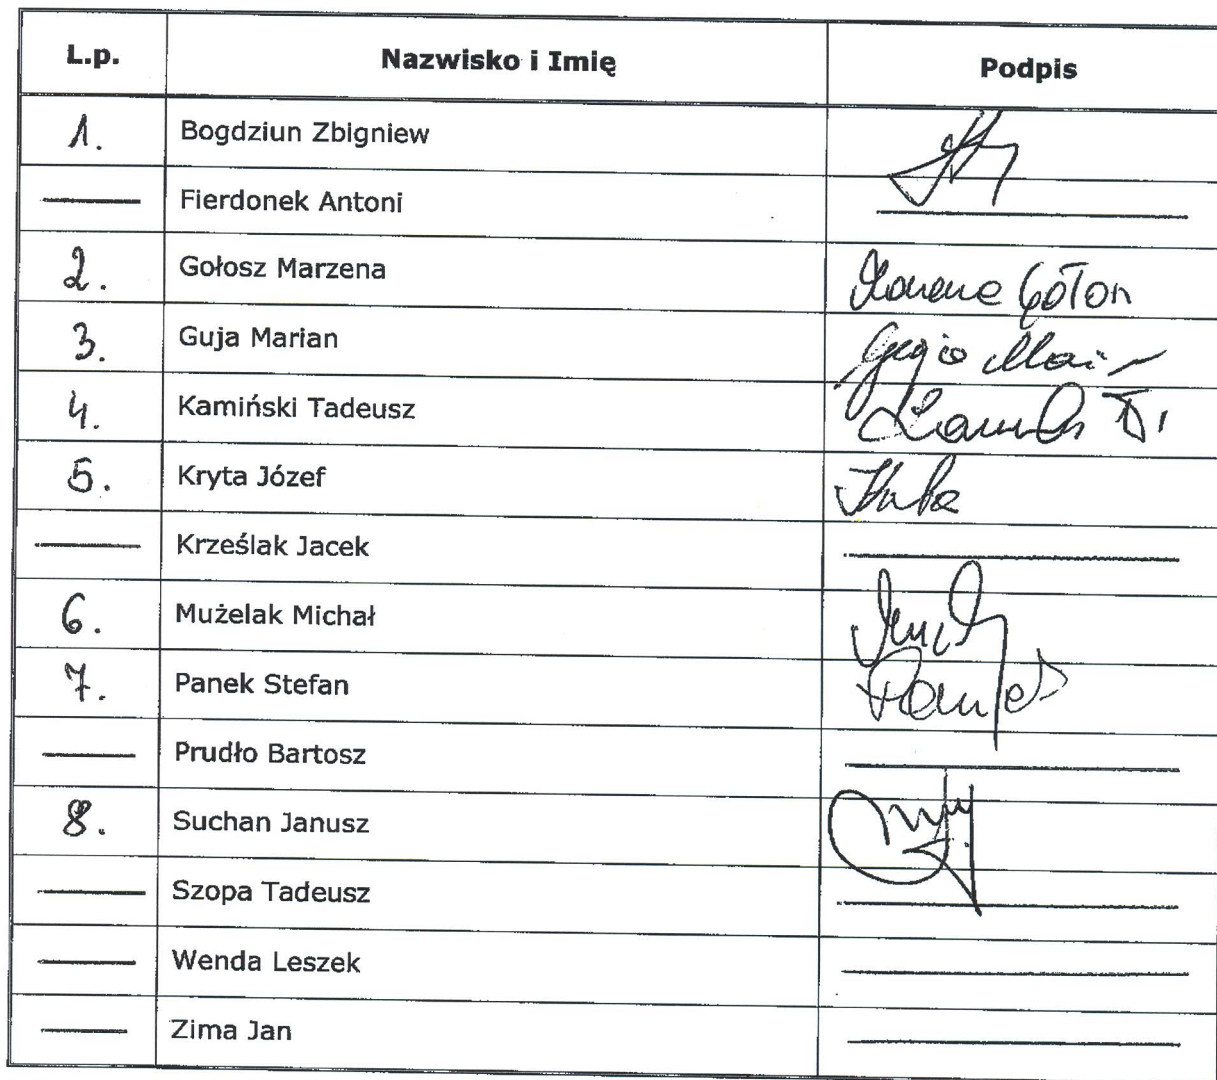 L.p. Nazwisko i Imię Podpis
1. Bogdziun Zbigniew
Fierdonek Antoni
2. Gołosz Marzena
3. Guja Marian
4. Kamiński Tadeusz
5. Kryta Józef
Krześlak Jacek
6. Mużelak Michał
7. Panek Stefan
Prudło Bartosz
8. Suchan Janusz
Szopa Tadeusz
Wenda Leszek
Zima Jan